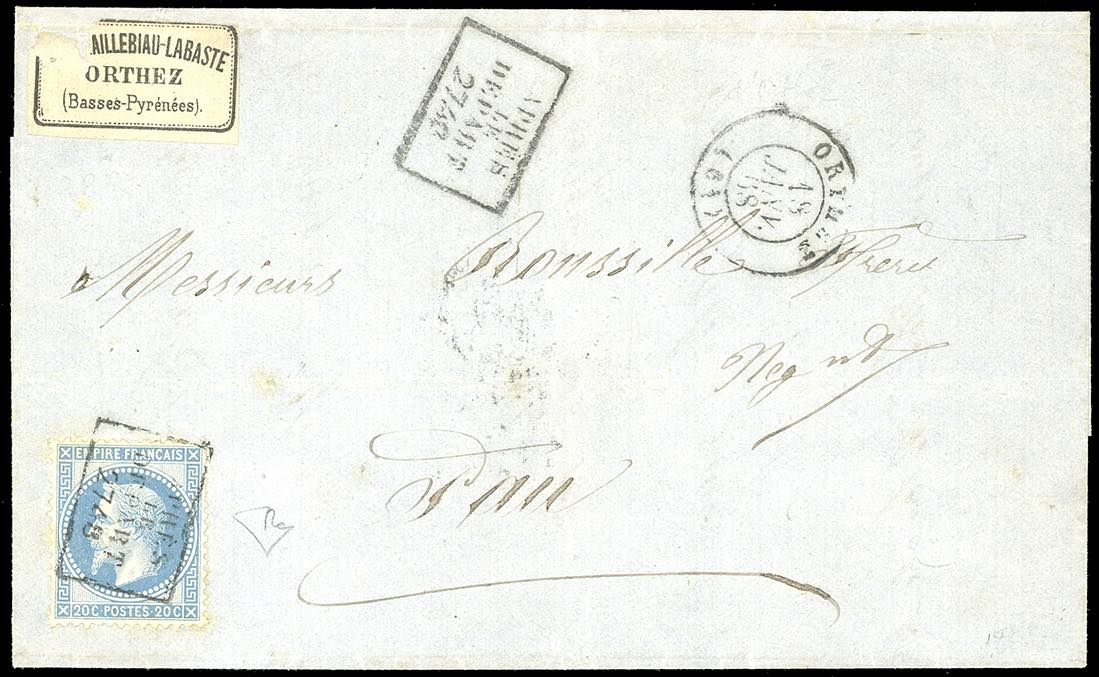 AILLEBIAU-LABASTE
ORTHEZ
(Basses-Pyrénées).
APRES
LE
DEPART
2748
ORTHEZ
13
JANV.
68
Messieurs Roussille Frères
Neg nts
Pau
EMPIRE FRANÇAIS
LE
2748
20C·POSTES·20C